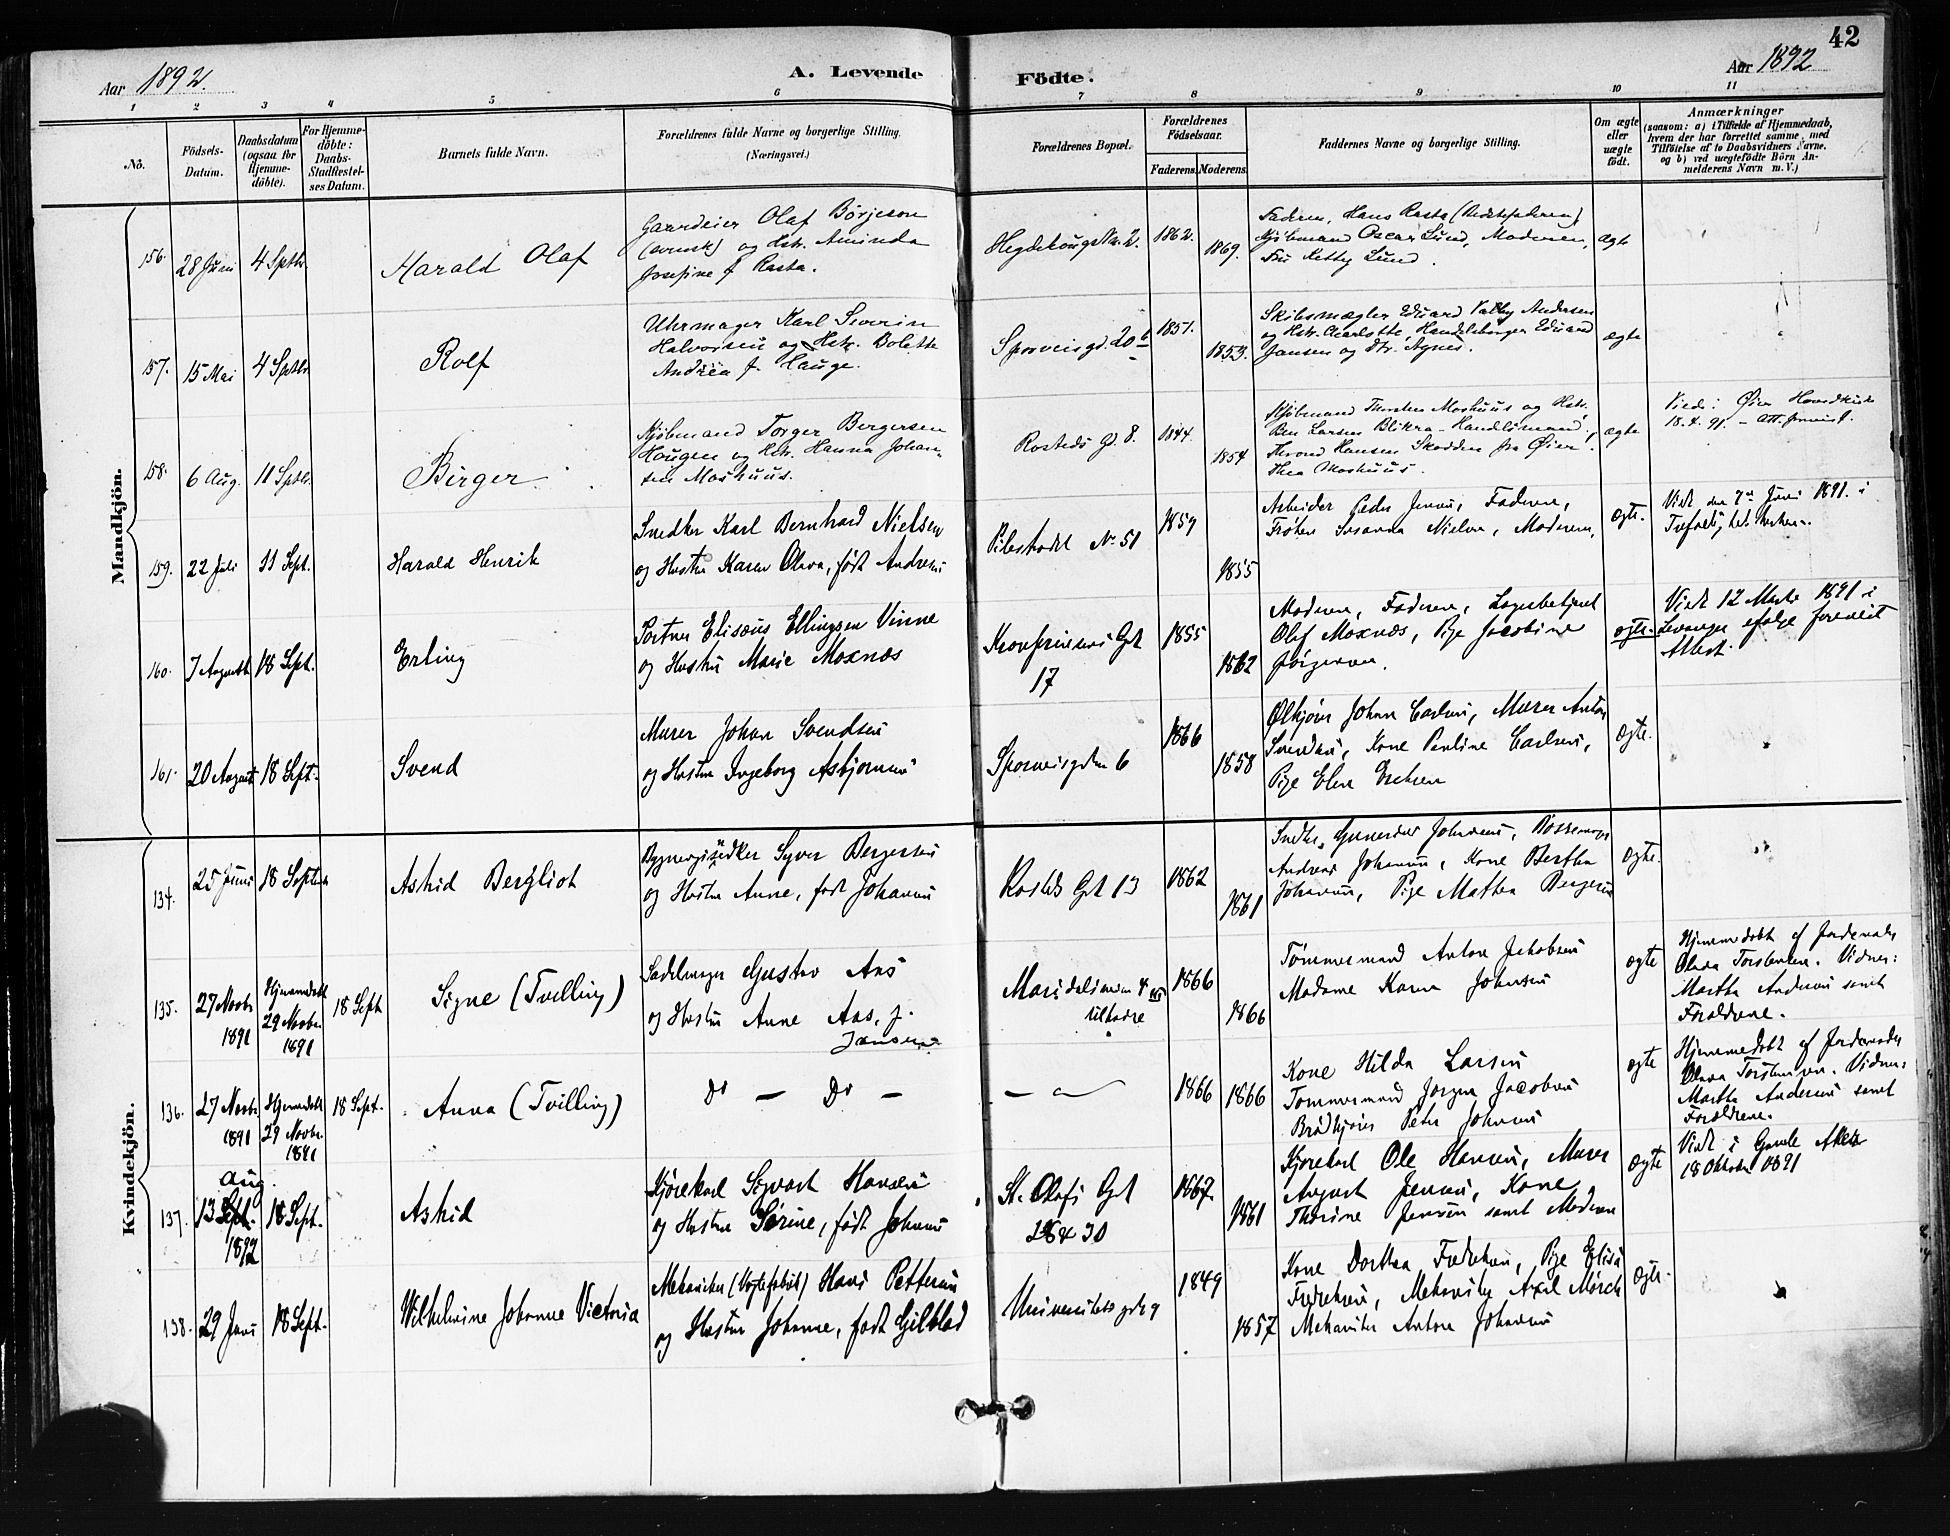 42
Aar 1892.
A. Levende Födte.
Aar 1892
1 2 3 4 5 6 7 8 9 10 11
No.
Födsels-
Datum.
Daabsdatum
(ogsaa for
Hjemme-
döbte).
For Hjemme-
döbte:
Daabs-
Stadfestel-
ses Datum.
Barnets fulde Navn.
Forældrenes fulde Navne og borgerlige Stilling.
(Næringsvei.)
Forældrenes Bopæl.
Forældrenes
Födselsaar.
Faderens. Moderens.
Faddernes Navne og borgerlige Stilling.
Om ægte
eller
uægte
födt.
Anmærkninger
(saasom: a) i Tilfælde af Hjemmedaab,
hvem der har forrettet samme, med
Tilföielse af to Daabsvidners Navne,
og b) ved uægtefödte Börn An-
melderens Navn m. V.)
Mandkjön.
156. 28 Juni 4 Septbr
Harald Olaf
Gaardeier Olaf Börjeson
(svensk) og Hstr. Aminda
Josefine f. Rasta.
Hegdehaugsvn. 2. 1862. 1869.
Faderen, Hans Rasta (Bedstefaderen),
Kjøbmand Oscar Lund, Moderen,
Fru Ketty Lund.
ægte
157. 15 Mai 4 Septbr
Rolf
Uhrmager Karl Severin
Halvorsen og Hstr. Bolette
Andrea f. Hauge.
Sporveisgd. 20 b 1851. 1853.
Skibsmægler Eduard Valby Andersen
og Hstr. Charlotte, Handelsborger Eduard
Jansen og Dtr. Agnes.
ægte
158. 6 Aug. 11 Septbr.
Birger
Kjöbmand Torger Bergersen
Haugen og Hstr. Hanna Johan-
sen Moshuus.
Rosteds Gd. 8. 1844. 1854
Kjöbmand Thorsten Moshuus og Hstr.
Ben Larsen Blikra - Handelsmand,
Thrond Hansen Skodden fra Øier.
Thea Moshuus.
ægte
Viede: Øier Hovedkirke
18.4.91. – Att. forevist.
159. 22 Juli 11 Sept.
Harald Henrik
Snedker Karl Bernhard Nielsen
og Hustru Karen Oleva, født Andresen
Pilestrædet No 51 1859 1855
Arbeider Peder Jensen, Faderen,
Frøken Susanna Nielsen, Moderen,
ægte.
Viet den 7de Juni 1891. i
Trefoldighedskirken.
160. 7 August 18 Sept.
Erling
Portner Elisæus Ellingsen Vinne
og Hustru Marie Moxnæs
Kronprinsens Gd
17
1855 1862
Moderen, Faderen, Lagerbetjent
Olaf Moxnæs, Pige Jacobine
Jørgensen.
ægte.
Viet 12 Marts 1891 i
Levanger ifølge forevist
Attest.
161. 20 August 18 Sept.
Svend
Murer Johan Svendsen
og Hustru Ingeborg Asbjørnsen
Sporveisgaden 6 1866 1858
Ølkjører Johan Carlsen, Murer Anton
Svendsen, Kone Pauline Carlsen,
Pige Elen Erichsen
ægte.
Kvindekjön.
134. 25 Juni 18 Septbr
Astrid Bergliot
Bygningssnedker Syver Bergersen
og Hustru Anne, født Johansen
Rosteds Gd 13 1862 1861
Snedker Gunerius Johansen,
Andreas Johansen, Kone Berthe
Johansen, Pige Mathea Bergersen
ægte.
135. 27 Novbr
1891
Hjemmedøbt
29 Novbr.
1891
18 Sept
Signe (Tvilling)
Sadelmager Gustav Aas
og Hustru Anne Aas, f.
Jansen
Maridalsveien 4
tilhøire
1866 1866
Tømmermand Anton Jakobsen
Madame Karen Johansen
ægte
Hjemmedøbt af Jordemoder
Olava Torstensen. Vidner:
Martha Andersen samt
Forældrene.
136. 27 Novbr
1891
Hjemmedøbt
29 Novbr.
1891
18 Sept.
Anna (Tvilling)
Do — Do —
— " —
1866 1866
Kone Hilda Larsen
Tømmermand Jørgen Jacobsen
Brødkjører Peter Johansen
ægte
Hjemmedøbt af Jordemoder
Olava Torstensen. Vidner:
Martha Andersen samt
Forældrene.
137. 13 Sept. Aug.
1892
18 Sept.
Astrid
Kjørekarl Sigvart Hansen
og Hustru Sørine, født Johansen
St. Olafs Gd
28 & 30
1867. 1861
Kjørekarl Ole Hansen, Murer
August Jensen, Kone
Thorine Jensen samt Moderen
ægte
Viet i Gamle Aker
18 Oktober 1891
138. 29 Juni 18 Sept.
Wilhelmine Johanne Victoria
Mekaniker (Vægtefabrik) Hans Pettersen
og Hustru Johanne, født Gilblad
Universitetsgden 9 1849 1857
Kone Dorthea Fredriksen, Pige Elisa
Fredriksen, Mekaniker Axel Mørch
Mekaniker Anton Johansen
ægte.